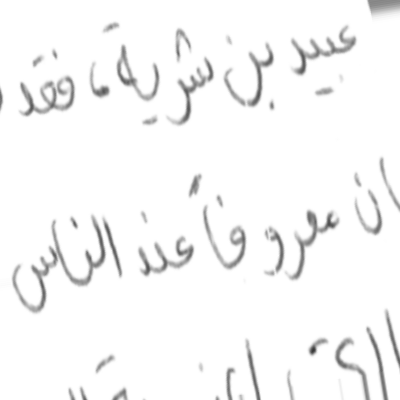 عبيد بن شرية، فقد
ان معروفاً عند الناس